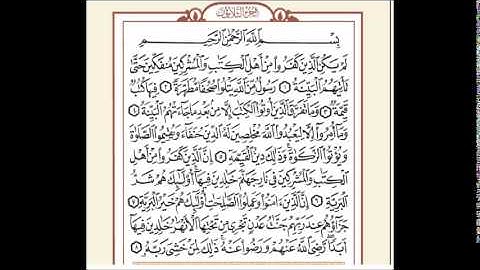 الجزء الثلاثون
بِسْمِ اللَّهِ الرَّحْمَٰنِ الرَّحِيمِ
لَمْ يَكُنِ الَّذِينَ كَفَرُوا مِنْ أَهْلِ الْكِتَٰبِ وَالْمُشْرِكِينَ مُنفَكِّينَ حَتَّىٰ
تَأْتِيَهُمُ الْبَيِّنَةُ ١ رَسُولٌ مِّنَ اللَّهِ يَتْلُوا صُحُفًا مُّطَهَّرَةً ٢ فِيهَا كُتُبٌ
قَيِّمَةٌ ٣ وَمَا تَفَرَّقَ الَّذِينَ أُوتُوا الْكِتَٰبَ إِلَّا مِنۢ بَعْدِ مَا جَاءَتْهُمُ الْبَيِّنَةُ ٤
وَمَا أُمِرُوا إِلَّا لِيَعْبُدُوا اللَّهَ مُخْلِصِينَ لَهُ الدِّينَ حُنَفَاءَ وَيُقِيمُوا الصَّلَوٰةَ
وَيُؤْتُوا الزَّكَوٰةَ وَذَٰلِكَ دِينُ الْقَيِّمَةِ ٥ إِنَّ الَّذِينَ كَفَرُوا مِنْ أَهْلِ
الْكِتَٰبِ وَالْمُشْرِكِينَ فِي نَارِ جَهَنَّمَ خَٰلِدِينَ فِيهَا أُولَٰئِكَ هُمْ شَرُّ
الْبَرِيَّةِ ٦ إِنَّ الَّذِينَ ءَامَنُوا وَعَمِلُوا الصَّٰلِحَٰتِ أُولَٰئِكَ هُمْ خَيْرُ الْبَرِيَّةِ ٧
جَزَاؤُهُمْ عِندَ رَبِّهِمْ جَنَّٰتُ عَدْنٍ تَجْرِي مِن تَحْتِهَا الْأَنْهَٰرُ خَٰلِدِينَ فِيهَا
أَبَدًا رَّضِيَ اللَّهُ عَنْهُمْ وَرَضُوا عَنْهُ ذَٰلِكَ لِمَنْ خَشِيَ رَبَّهُ ٨